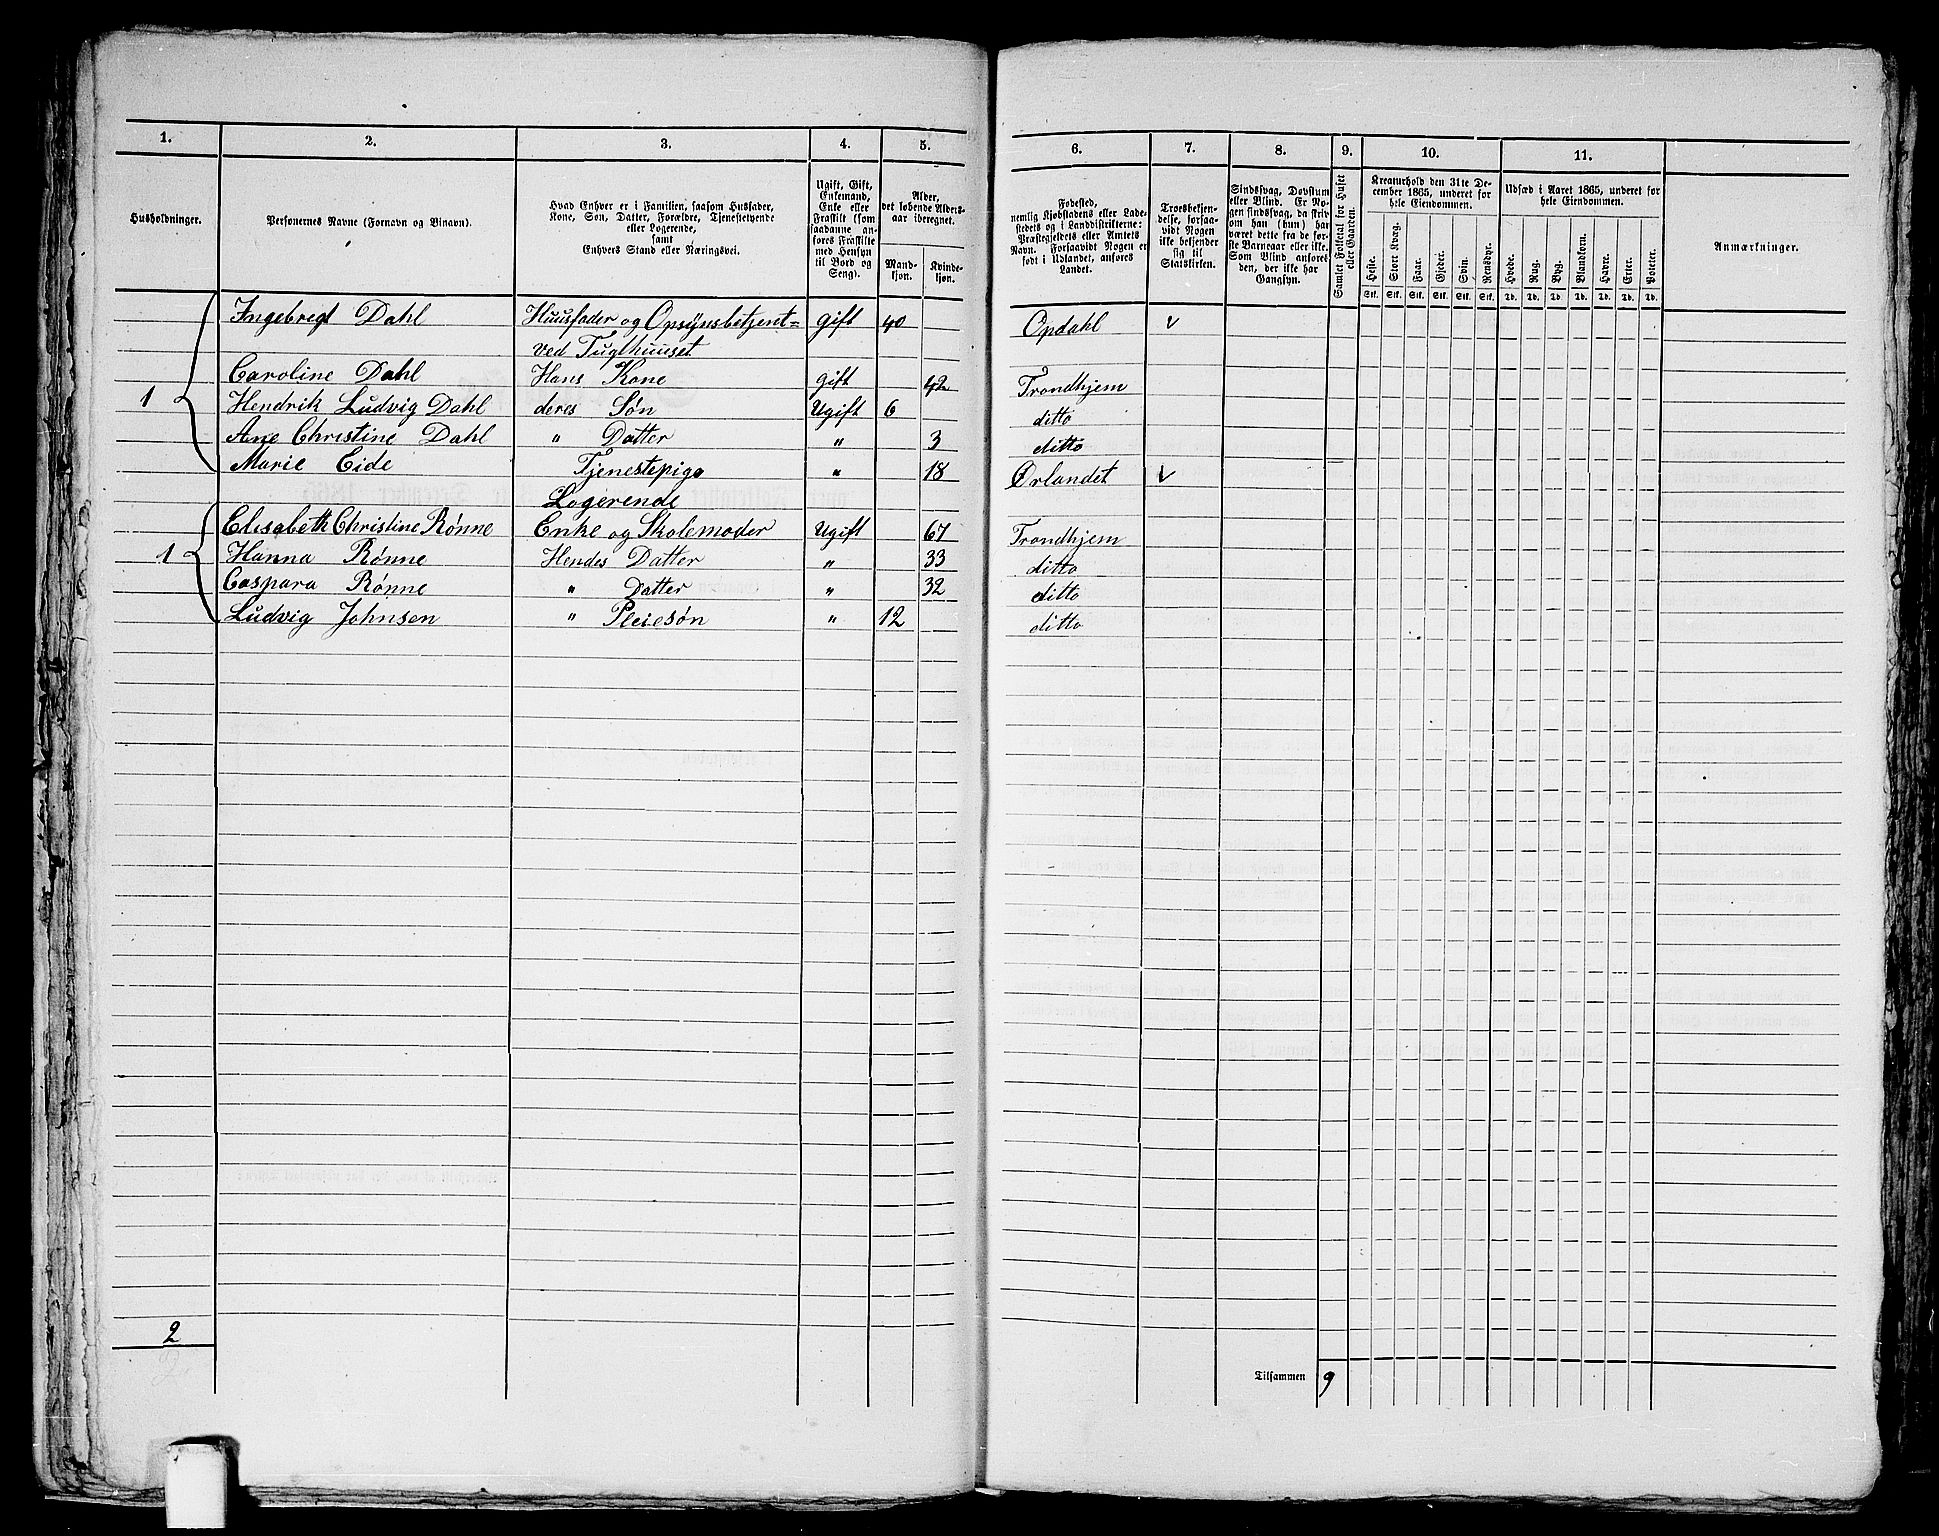 1. 2. 3. 4. 5. 6. 7. 8. 9. 10. 11.
Husholdninger.
Personernes Navne (Fornavn og Binavn).
Hvad Enhver er i Familien, saasom Husfader,
Kone, Søn, Datter, Forældre, Tjenestetyende
eller Logerende,
samt
Enhvers Stand eller Næringsvei.
Ugift, Gift,
Enkemand,
Enke eller
Fraskilt (som
saadanne an-
føres Fraskilte
med Hensyn
til Bord og
Seng).
Alder,
det løbende Alders-
aar iberegnet.
Mand-
kjøn.
Kvinde-
kjøn.
Fødested,
nemlig Kjøbstadens eller Lade-
stedets og i Landdistrikterne:
Præstegjeldets eller Amtets
Navn. Forsaavidt Nogen er
født i Udlandet, anføres
Landet.
Troesbekjen-
delse, forsaa-
vidt Nogen
ikke bekjender
sig til
Statskirken.
Sindssvag, Døvstum
eller Blind. Er No-
gen sindssvag, da skriv
om han (hun) har
været dette fra de før-
ste Barneaar eller ikke.
Som Blind anføres
den, der ikke har
Gangsyn.
Samlet Folketal for Huset
eller Gaarden.
Kreaturhold den 31te De-
cember 1865, underet for
hele Eiendommen.
Heste. Stort Kvæg. Faar. Gjeder. Svin. Rensdyr.
Stk. Stk. Stk. Stk. Stk. Stk.
Udsæd i Aaret 1865, underet for
hele Eiendommen.
Hvede. Rug. Byg. Blandkorn. Havre. Erter. Poteter.
Td. Td. Td. Td. Td. Td. Td.
Anmærkninger.
Ingebregt Dahl Huusfader og Opsynsbetjent= gift 40 Opdahl v
ved Tugthuuset
1 Caroline Dahl Hans Kone gift 42 Trondhjem
Hendrik Ludvig Dahl deres Søn Ugift 6 ditto
Ane Christine Dahl " Datter " 3 ditto
Marie Eide Tjenestepige " 18 Ørlandet v
Logerende
1 Elisabeth Christine Rønne Enke og Skolemoder Ugift 67 Trondhjem
Hanna Rønne Hendes Datter " 33 ditto
Caspara Rønne " Datter " 32 ditto
Ludvig Johnsen " Pleiesøn " 12 ditto
2
Tilsammen 9